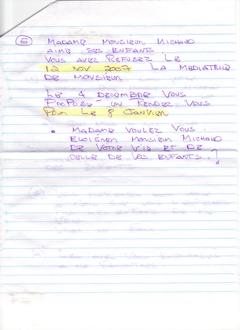 6
MADAME MONSIEUR MICHAUD
AIME SES ENFANTS
VOUS AVEZ REFUSEZ LE
12 NOV 2007 LA MEDIATRICE
DE MONSIEUR
LE 4 DECEMBRE VOUS
PROPOSE UN RENDEZ VOUS
POUR LE 8 JANVIER
• MADAME VOULEZ VOUS
ELOIGNER MONSIEUR MICHAUD
DE VOTRE VIE ET DE
CELLE DE VOS ENFANTS ?